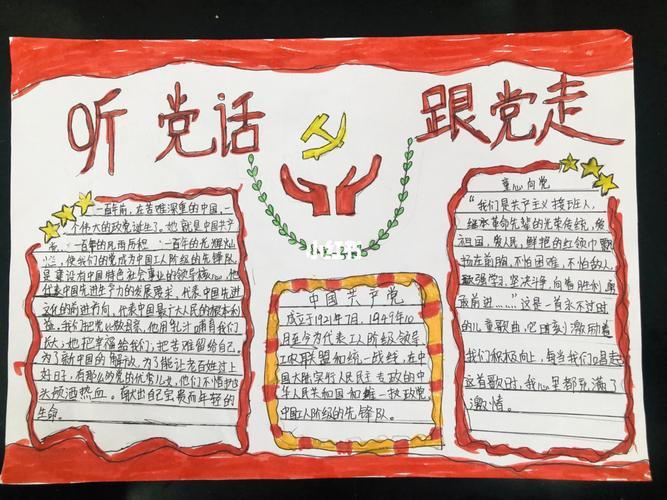 听党话
跟党走
一百年前,在苦难深重的中国,一
个伟大的政党诞生了。她就是中国共产
党。一百年的风雨历程 一百年的光辉灿
烂,使我们的党成为中国工人阶级的先锋队,
是建设有中国特色社会事业的领导核心,他
代表中国先进生产力的发展要求,代表中国先进
文化的前进方向,代表中国最广大人民的根本利
益。我们把党比做母亲,他用乳汁哺育我们
成长;她把幸福给我们;把苦难留给自己。
为了新中国的解放,为了能让老百姓过上
好日子,有那么的党的优秀儿女,他们不惜抛
头颅洒热血。献出自己宝贵而年轻的
生命。
小红书
中国共产党
成立于1921年7月,1949年10
月至今为代表工人阶级领导
工农联盟和统一战线,在中
国大陆实行人民民主专政的中
华人民共和国和唯一执政党,
中国工人阶级的先锋队。
童心向党
“我们是共产主义接班人,
继承革命先辈的光荣传统,爱
祖国,爱人民,鲜艳的红领巾飘
扬在前胸,不怕困难,不怕敌人,
顽强学习,坚决斗争,向着胜利,勇
敢前进……”这是一首永不过时
的儿童歌曲,它时刻激励着
我们积极向上,每当我们唱起
这首歌时,我心里都充满了
激情。